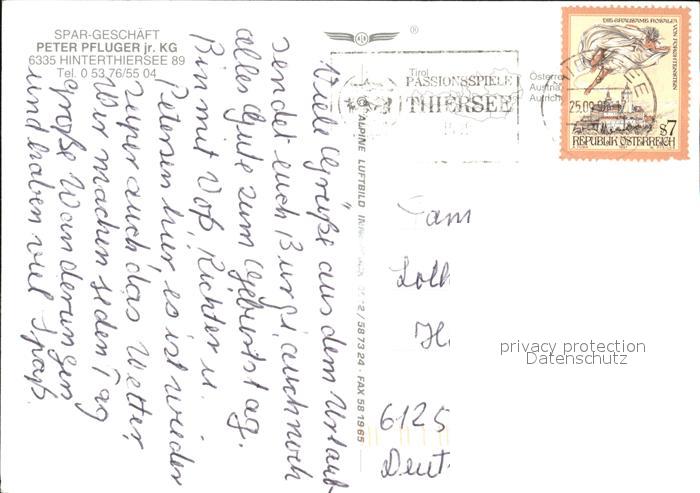 SPAR-GESCHÄFT
PETER PFLUGER jr. KG
6335 HINTERTHIERSEE 89
Tel. 0 53 76/55 04
Viele Grüße aus dem Urlaub
sendet euch Burgi, auch noch
alles Gute zum Geburtstag.
Bin mit Voß, Richter u.
Petersen hier, es ist wieder
super auch das Wetter
Wir machen jeden Tag
große Wanderungen
und haben viel Spaß.
®
Tirol
PASSIONSSPIELE
THIERSEE
Österre
Austria
Autrich
25.09.9
DIE GRAUSAME ROSALIA
VON FORCHTENSTEIN
S7
REPUBLIK ÖSTERREICH
ALPINE LUFTBILD 58 73 24 · FAX 58 19 65
Fam
Loth
H
6125
Deut
privacy protection
Datenschutz